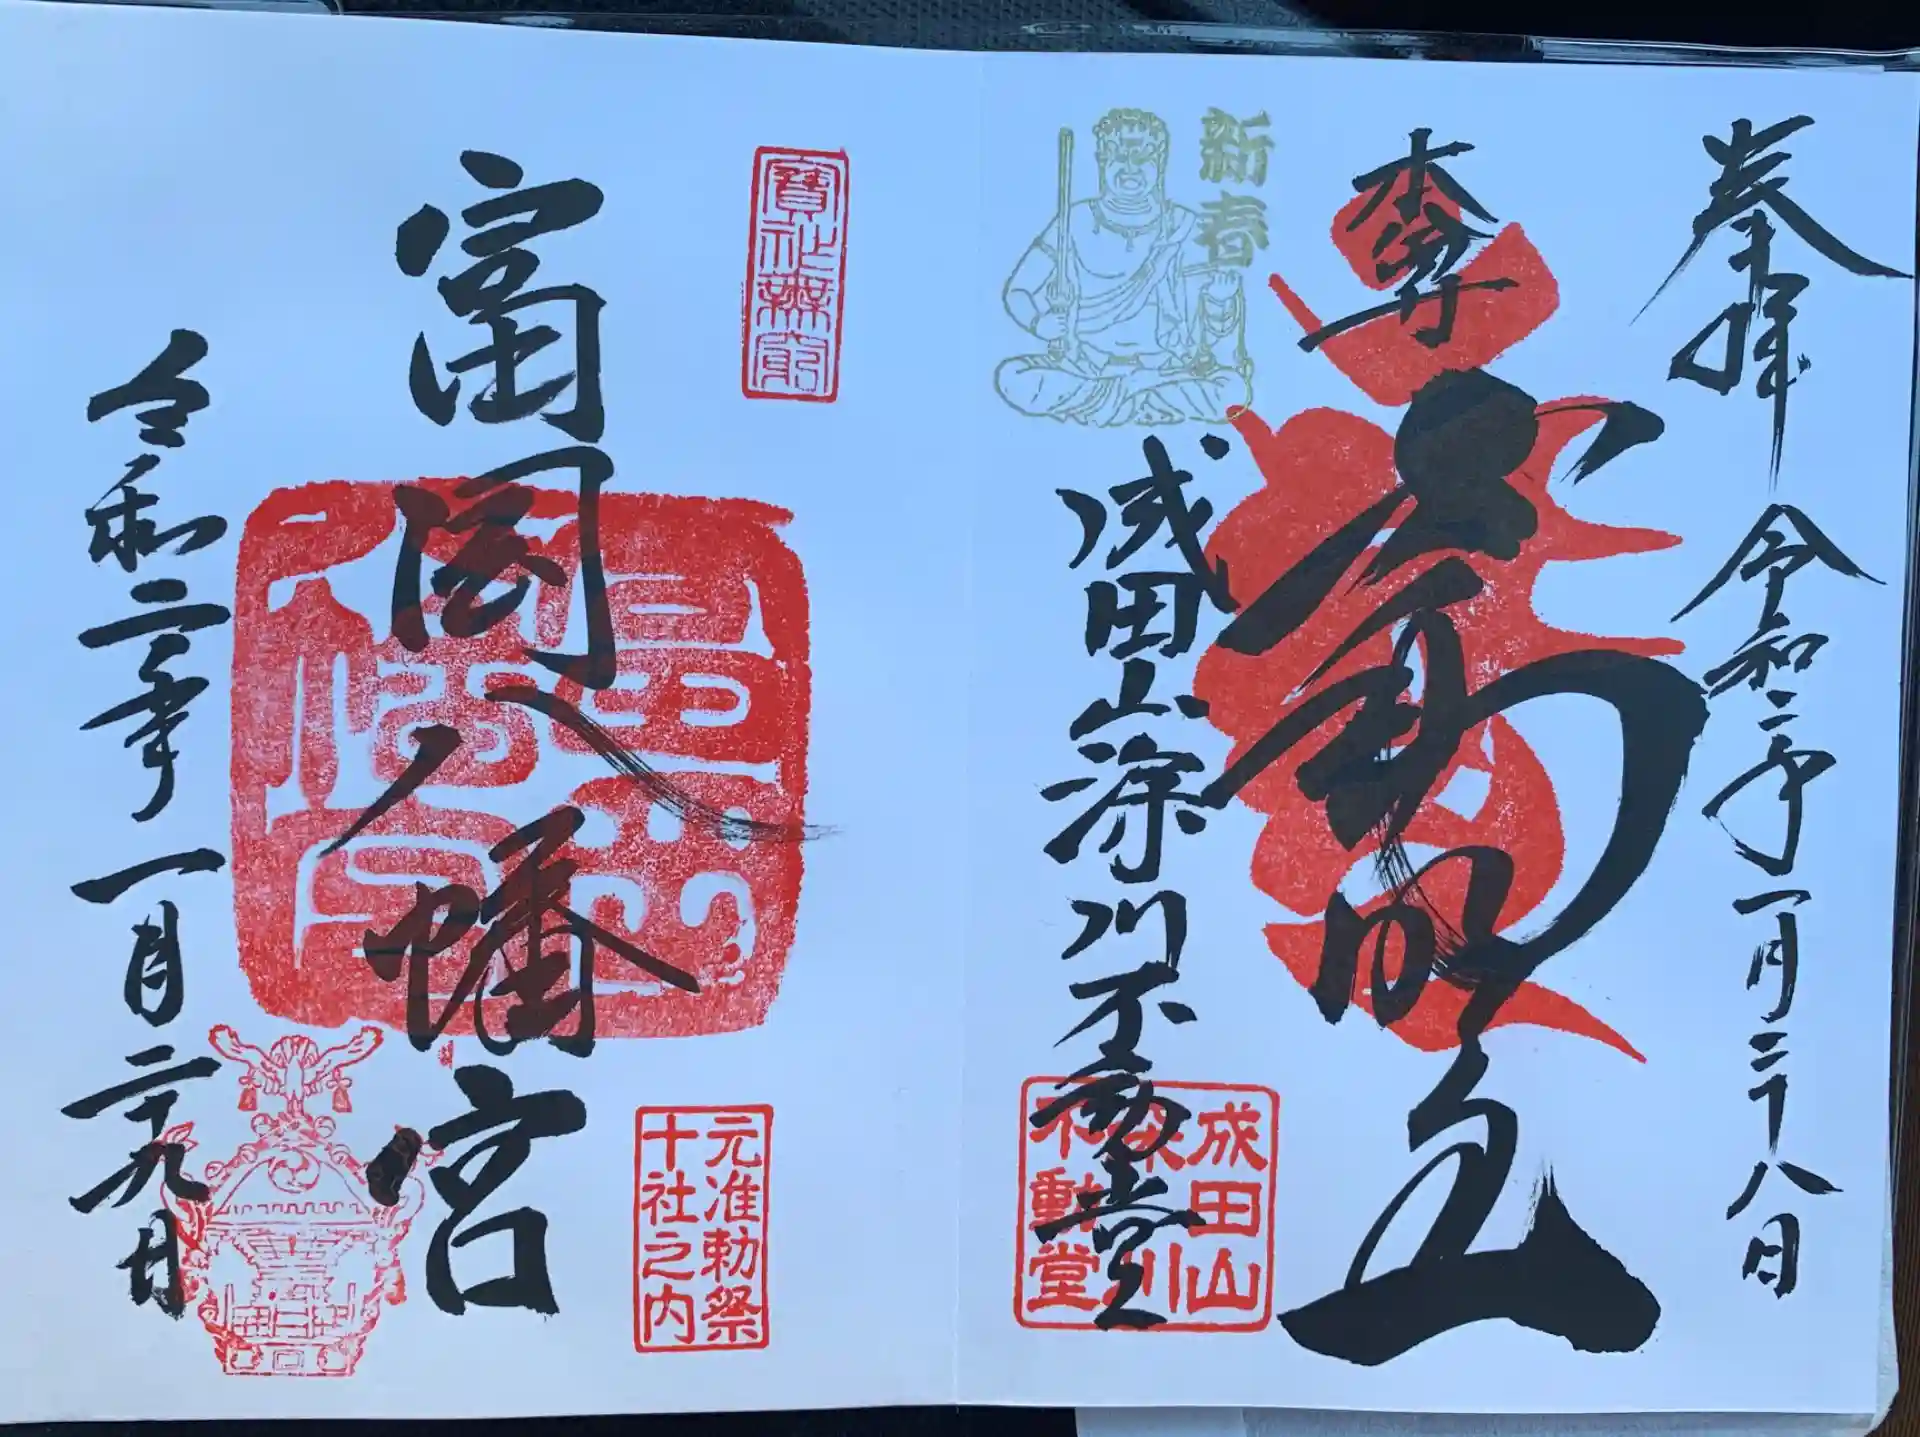 奉拝 令和二年一月二十八日
本尊 不動明王
新春
成田山深川不動堂
成田山
深川
不動堂
寶祚無窮
富岡八幡宮
富岡
八幡宮
元准勅祭
十社之内
令和二年一月二十九日